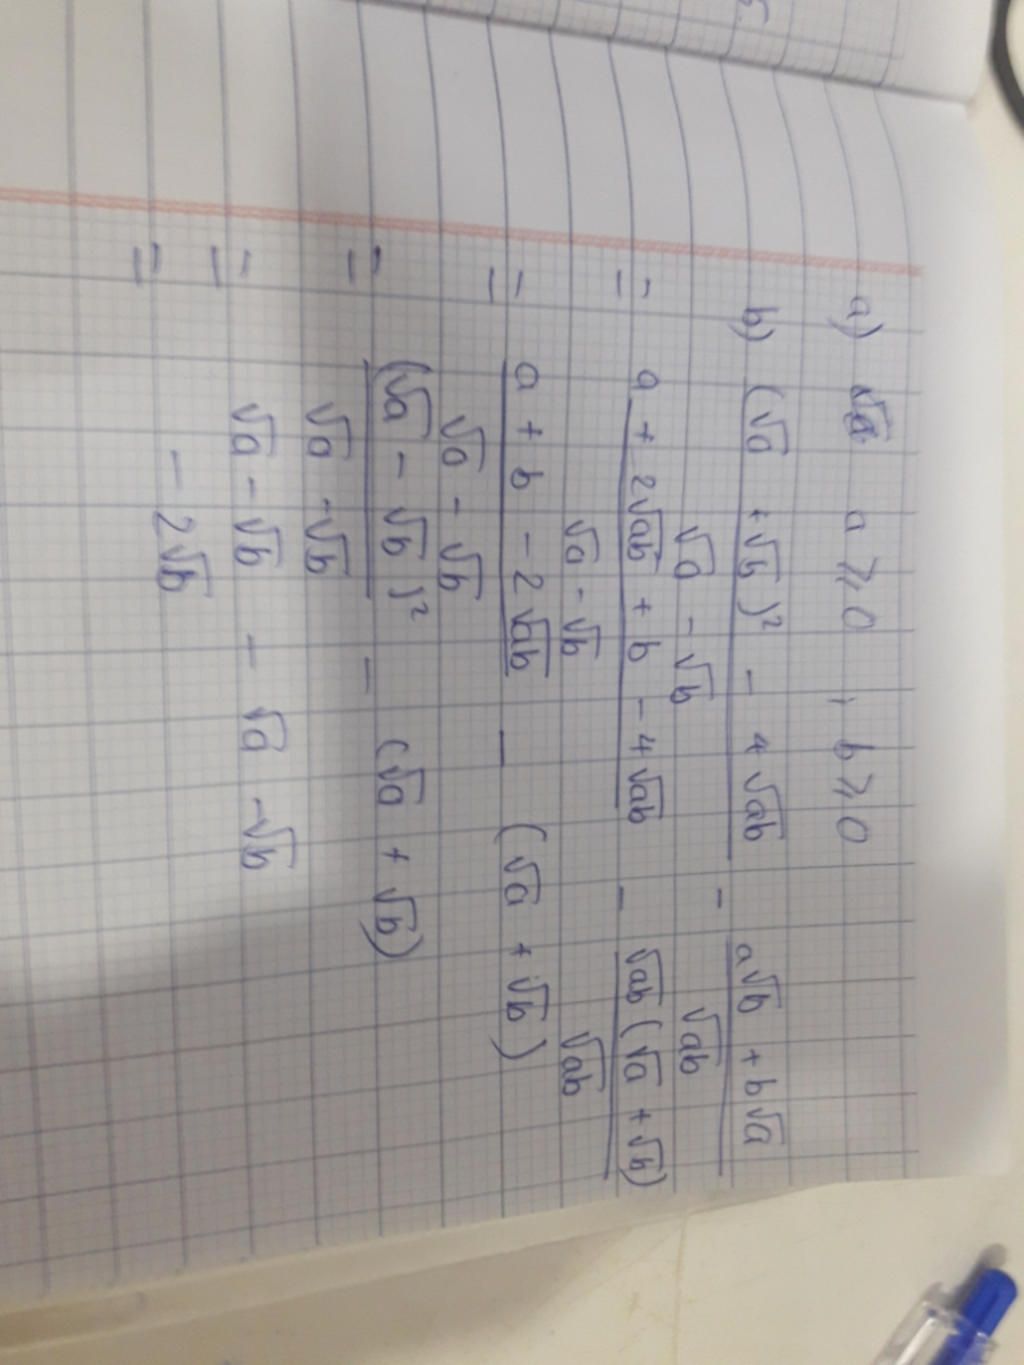 a) a ⩾ 0 ; b ⩾ 0
b) (√a + √b)² - 4√ab / √a - √b - a√b + b√a / √ab
= a + 2√ab + b - 4√ab / √a - √b - √ab (√a + √b) / √ab
= a + b - 2√ab / √a - √b - (√a + √b)
= (√a - √b)² / √a - √b - (√a + √b)
= √a - √b - √a - √b
= - 2√b